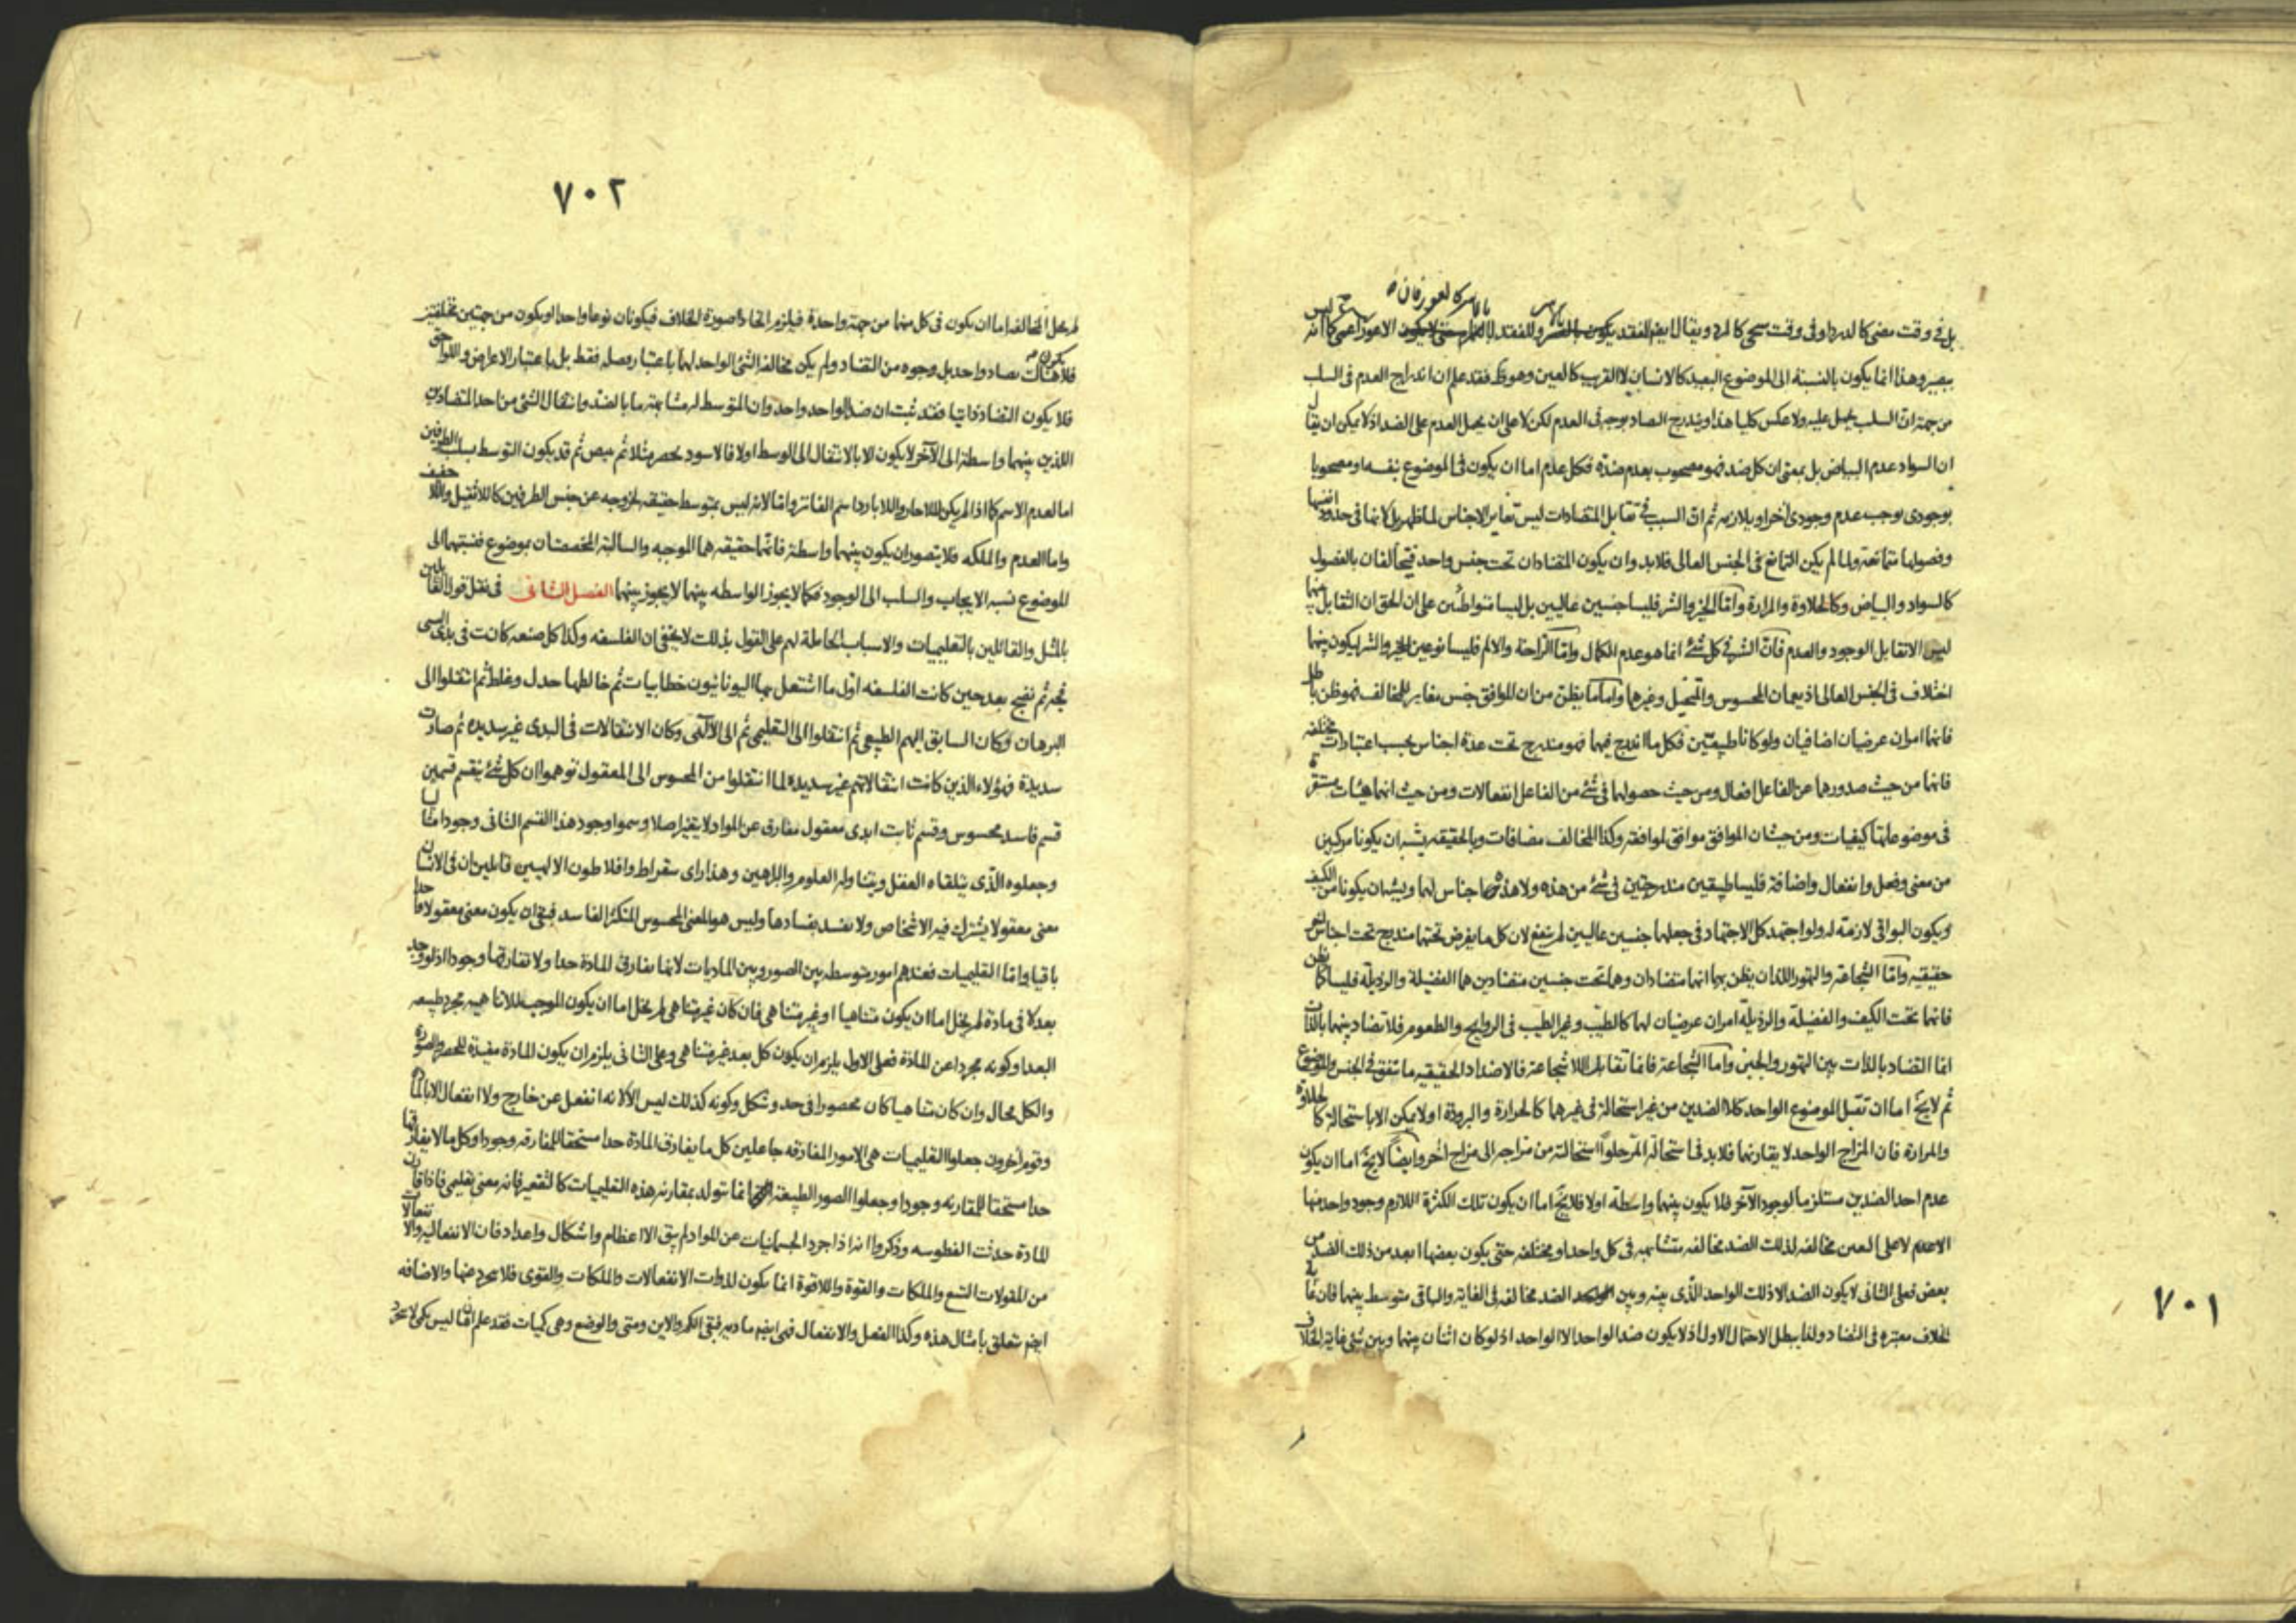 بل فى وقت مضى كالدرد او فى وقت سيجئ كالمرد ويقال ايضا لفقد يكون وللفقد لا يكون الاعور اعمى كما انه ليس
ببصير وهذا انما يكون بالنسبة الى الموضوع البعيد كالانسان لا القريب كالعين وهو ظ فقد علم ان اندراج العدم فى السلب
من جهة ان السلب يحمل عليه ولا عكس كليا هذا ويندرج الضاد بوجه فى العدم لكن لا على ان يحمل العدم على الضد اذ لا يمكن ان يقال
ان السواد عدم البياض بل بمعنى ان كل ضد فهو مصحوب بعدم ضده فكل عدم اما ان يكون فى الموضوع بنفسه او مصحوبا
بوجودى يوجب عدم وجودى آخر او يلازمه ثم ان السبب فى تقابل المتضادات ليس تغاير الاجناس لما ظهر بل لانها فى حدود انفسها
وفصولها متمانعة ولما لم يكن التمانع فى الجنس العالى فلابد وان يكون المتضادان تحت جنس واحد فيتخالفان بالفصول
كالسواد والبياض وكالحلاوة والمرارة واما الخير والشر فليسا جنسين عاليين بل ليسا متواطئين على ان الحق ان التقابل بينهما
ليس الا تقابل الوجود والعدم فان الشر فى كل شئ انما هو عدم الكمال واما الراحة والالم فليسا نوعين للخير والشر ليكون بينهما
اختلاف فى الجنس العالى اذ يعمان المحسوس والمتخيل وغيرها واما ما يظن من ان الموافق جنس مغاير للمخالف فهو ظن باطل
فانهما امران عرضيان اضافيان ولو كانا طبيعتين فكل ما اندرج فيهما فهو مندرج تحت عدة اجناس بحسب اعتبارات مختلفة
فانها من حيث صدورهما عن الفاعل افعال ومن حيث حصولها فى شئ من الفاعل انفعالات ومن حيث انهما هيئات مستقرة
فى موضوعاتها كيفيات ومن حيث ان الموافق موافق لموافقه وكذا المخالف مضافات وبالحقيقه يشبه ان يكونا مركبين
من معنى وفعل وانفعال واضافة فليسا طبيعتين مندرجتين فى شئ من هذه ولا هذه اجناس لهما ويشبه ان يكونا من الكيف
ويكون البواقى لازمة له ولو اجتهد كل الاجتهاد فى جعلها جنسين عاليين لم ينفع لان كل ما يفرض تحتهما مندرج تحت اجناس
حقيقيه واما الشجاعة والتهور اللذان يظن بهما انهما متضادان وهما تحت جنسين متضادين هما الفضيلة والرذيلة فليسا كما يظن
فانهما تحت الكيف والفضيلة والرذيلة امران عرضيان لهما كالطيب وغير الطيب فى الروايح والطعوم فلا تضاد بينهما بالذات
انما التضاد بالذات بين التهور والجبن واما الشجاعة فانما تقابل اللاشجاعة فالاضداد الحقيقيه ما تتفق فى الجنس والموضوع
ثم لا يخ اما ان تقبل الموضوع الواحد كلا الضدين من غير استحالة فى غيرهما كالحرارة والبرودة او لا يمكن الا باستحالة كالحلاوة
والمرارة فان المزاج الواحد لا يقارنهما فلابد فى استحالة المر حلوا استحالته من مزاجه الى مزاج آخر وايضا لا يخ اما ان يكون
عدم احد الضدين مستلزما لوجود الآخر فلا يكون بينهما واسطة اولا فلا يخ اما ان يكون تلك الكثرة اللازم وجود واحد منها
لاعلى العين مخالفة لذلك الضد مخالفة متشابهه فى كل واحد او مختلفه حتى يكون بعضها ابعد من ذلك الضد من
بعض فعلى الثانى لا يكون الضد الا ذلك الواحد الذى بينه وبين الضد مخالفة فى الغاية والباقى متوسط بينهما فان غاية
الخلاف معتبره فى التضاد ولنا يبطل الاحتمال الاول اذ لا يكون ضد الواحد الا الواحد اذ لو كان اثنان بينهما وبين شئ غاية الخلاف
٧٠١
٧٠٢
لم يخل المخالفه اما ان يكون فى كل منها من جهة واحدة فيلزم اتحاد صورة الخلاف فيكونان نوعا واحدا او يكون من جهتين مختلفتين
فلا يكون هناك تضاد واحد بل وجوه من التضاد ولم يكن مخالفة الشئ الواحد لهما باعتبار فصله فقط بل باعتبار الاعراض واللواحق
فلا يكون التضاد ذاتيا فقد ثبت ان ضد الواحد واحد وان المتوسط له مشابهة ما بالضد وانتقال الشئ من احد المتضادين
اللذين بينهما واسطة الى الآخر لا يكون الا بالانتقال الى الوسط اولا فالاسود يخضر مثلا ثم يبيض ثم قد يكون التوسط بسلب الطرفين
اما لعدم الاسم كما اذا لم يكن للاحار واللابارد اسم الفاتر واما لانه ليس بمتوسط حقيقه لخروجه عن جنس الطرفين كاللاثقيل واللاخفيف
واما العدم والملكه فلا يتصور ان يكون بينهما واسطة فانهما حقيقه هما الموجبه والسالبة المخصصتان بموضوع فنسبتهما الى
الموضوع نسبه الايجاب والسلب الى الوجود فكما لا يجوز الواسطه بينهما لا يجوز بينهما الفصل الثانى فى نقل قول القايلين
بالمثل والقائلين بالتعليميات والاسباب الحاملة لهم على القول بذلك لا يخفى ان الفلسفه وكذا كل صنعه كانت فى بدى السى
فجه ثم نضج بعد حين كانت الفلسفه اول ما اشتغل بها اليونانيون خطابيات ثم خالطها جدل وغلط ثم انتقلوا الى
البرهان وكان السابق اليهم الطبيعى ثم انتقلوا الى التعليمى ثم الى الالهى وكان الانتقالات فى البدى غير سديده ثم صارت
سديدة فهؤلاء الذين كانت انتقالاتهم غير سديده لما انتقلوا من المحسوس الى المعقول توهموا ان كل شئ ينقسم قسمين
قسم فاسد محسوس وقسم ثابت ابدى معقول مفارق عن المواد لا يتغير اصلا وسموا وجود هذا القسم الثانى وجودا مثاليا
وجعلوه الذى يتلقاه العقل ويتناوله العلوم والبراهين وهذا راى سقراط وافلاطون الالهيين قائلين ان فى الانسان
معنى معقولا يشترك فيه الاشخاص ولا تفسد بفسادها وليس هو المعنى المحسوس المتكثر الفاسد فبقى ان يكون معنى معقولا
باقيا واما التعليميات فعندهم امور متوسطه بين الصور وبين الماديات لانها تفارق المادة حدا ولا تفارقها وجودا اذ لو وجد
بعد لا فى مادة لم يخل اما ان يكون متناهيا او غير متناهى فان كان غير متناهى لم يخل اما ان يكون الموجب للاتناهيه مجرد طبيعه
البعد او كونه مجردا عن المادة فعلى الاول يلزم ان يكون كل بعد غير متناهى وعلى الثانى يلزم ان يكون المادة مفيدة للحصر والصورة
والكل محال وان كان متناهيا كان محصورا فى حد وشكل وكونه كذلك ليس الا لانه انفعل عن خارج ولا انفعال الا بالمادة
وقوم آخرون جعلوا التعليميات هى الامور المفارقه جاعلين كل ما يفارق المادة حدا مستحقا للمفارقه وجودا وكل ما لا يفارقها
حدا مستحقا للمقارنه وجودا وجعلوا الصور الطبيعيه انما تتولد بمقارنه هذه التعليميات كالتقعير فانه معنى تعليمى فاذا قارن
المادة حدثت الفطوسه وذكروا انه اذا جرد الجسمانيات عن المواد لم يبق الا اعظام واشكال واعداد فان الانفعاليه والانفعالات
من المقولات التسع والملكات والقوة واللاقوة انما يكون لذوات الانفعالات والملكات والقوى فلا يجرد عنها والاضافه
ايضا تتعلق بامثال هذه وكذا الفعل والانفعال فهى ايضا ماديه فبقى الكم والاين ومتى والوضع وهى كميات فقد علم ان ما ليس بكمى لا يتجرد